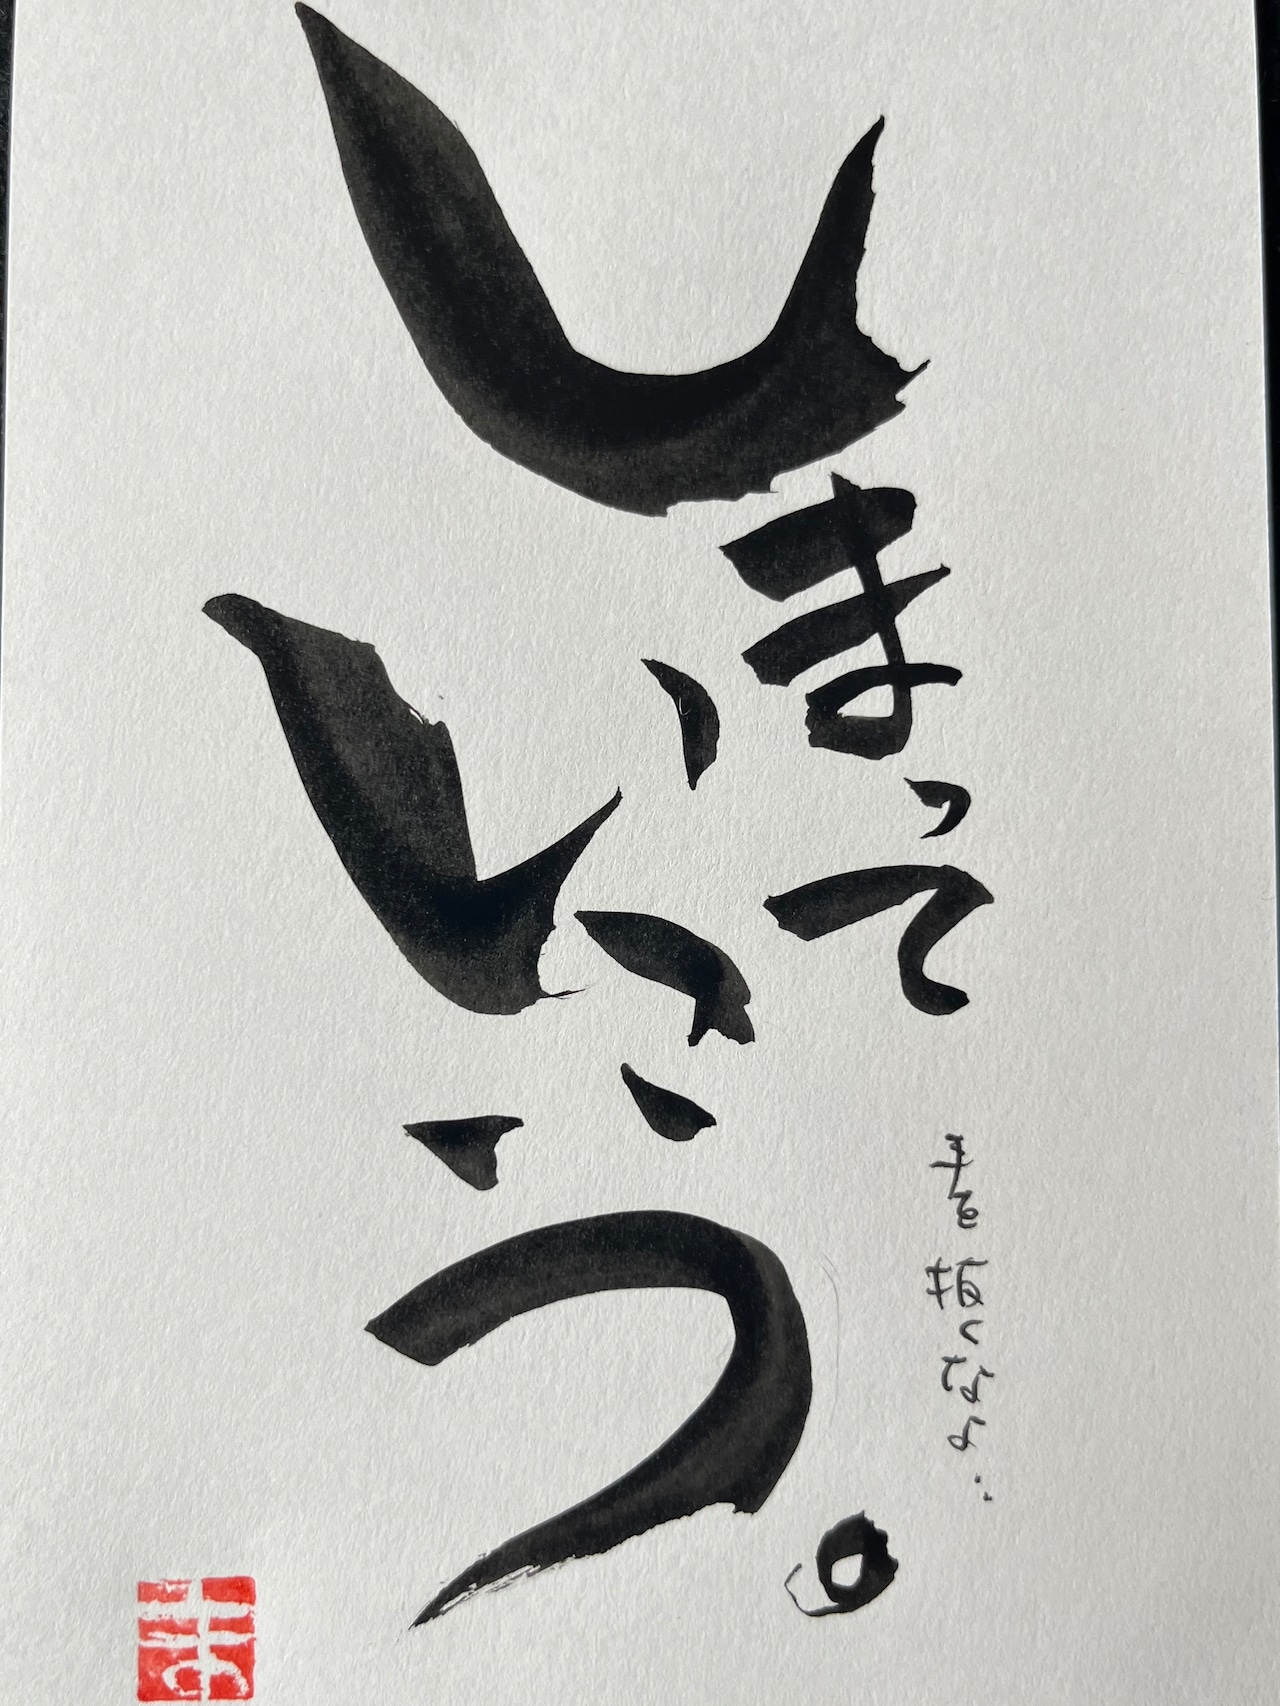 しまって
いこう。
手を抜くなよ‥
ま